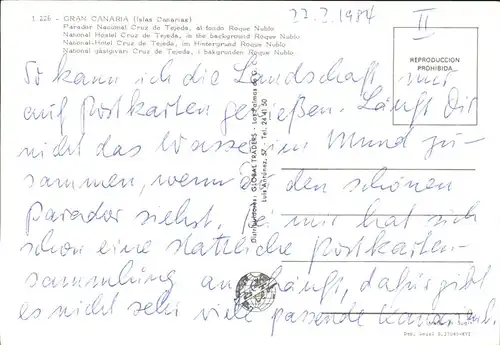 1.226 - GRAN CANARIA (Islas Canarias)
Parador Nacional Cruz de Tejeda, al fondo Roque Nublo
National Hostel Cruz de Tejeda, in the background Roque Nublo
National-Hotel Cruz de Tejeda, im Hintergrund Roque Nublo
National gäsigivari Cruz de Tejeda, i bakgrunden Roque Nublo
22.2.1984
II
REPRODUCCION
PROHIBIDA
So kann ich die Landschaft nur
auf Postkarten genießen. Läuft Dir
nicht das Wasser im Mund zu-
sammen, wenn Du den schönen
Parador siehst. Bei mir hat sich
schon eine stattliche Postkarten-
sammlung angehängt, dafür gibt
es nicht sehr viele passende
Distribuidores: GLOBAL TRADERS - Las Palmas de G. C.
Luis Antúnez, 57 - Tel. 24 41 50